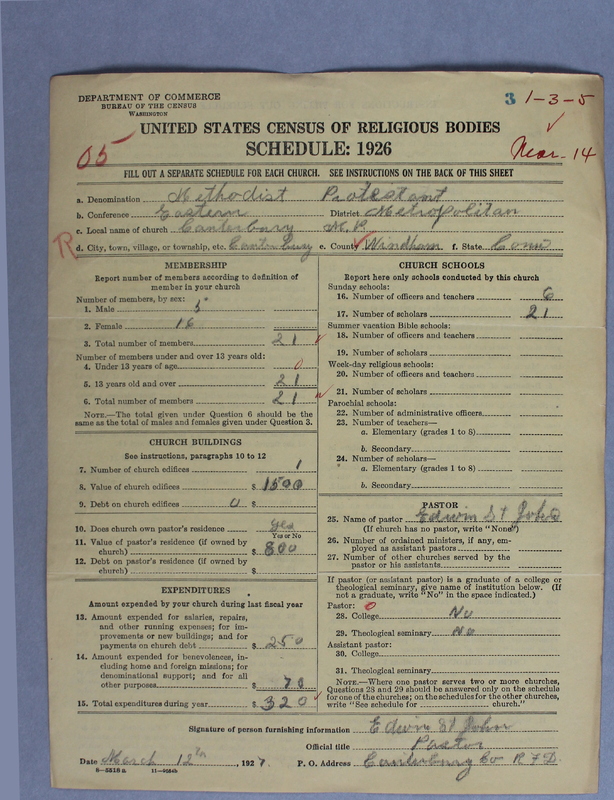 DEPARTMENT OF COMMERCE
BUREAU OF THE CENSUS
WASHINGTON
3 1-3-5
UNITED STATES CENSUS OF RELIGIOUS BODIES
05
SCHEDULE: 1926
Mar. 14
FILL OUT A SEPARATE SCHEDULE FOR EACH CHURCH. SEE INSTRUCTIONS ON THE BACK OF THIS SHEET
a. Denomination Methodist Protestant
b. Conference Eastern District Metropolitan
c. Local name of church Canterbury M.P.
R
d. City, town, village, or township, etc. Canterbury e. County Windham f. State Conn
MEMBERSHIP
Report number of members according to definition of
member in your church
Number of members, by sex:
1. Male 5
2. Female 16
3. Total number of members 21
Number of members under and over 13 years old:
4. Under 13 years of age 0
5. 13 years old and over 21
6. Total number of members 21
NOTE.—The total given under Question 6 should be the
same as the total of males and females given under Question 3.
CHURCH BUILDINGS
See instructions, paragraphs 10 to 12
7. Number of church edifices 1
8. Value of church edifices $ 1500
9. Debt on church edifices 0 $
10. Does church own pastor's residence yes
Yes or No
11. Value of pastor's residence (if owned by
church) $ 800
12. Debt on pastor's residence (if owned by
church) $
EXPENDITURES
Amount expended by your church during last fiscal year
13. Amount expended for salaries, repairs,
and other running expenses; for im-
provements or new buildings; and for
payments on church debt $ 250
14. Amount expended for benevolences, in-
cluding home and foreign missions; for
denominational support; and for all
other purposes $ 70
15. Total expenditures during year $ 320
CHURCH SCHOOLS
Report here only schools conducted by this church
Sunday schools:
16. Number of officers and teachers 6
17. Number of scholars 21
Summer vacation Bible schools:
18. Number of officers and teachers
19. Number of scholars
Week-day religious schools:
20. Number of officers and teachers
21. Number of scholars
Parochial schools:
22. Number of administrative officers
23. Number of teachers—
a. Elementary (grades 1 to 8)
b. Secondary
24. Number of scholars—
a. Elementary (grades 1 to 8)
b. Secondary
PASTOR
25. Name of pastor Edwin St John
(If church has no pastor, write "None")
26. Number of ordained ministers, if any, em-
ployed as assistant pastors
27. Number of other churches served by the
pastor or his assistants
If pastor (or assistant pastor) is a graduate of a college or
theological seminary, give name of institution below. (If
not a graduate, write "No" in the space indicated.)
Pastor: 0
28. College No
29. Theological seminary No
Assistant pastor:
30. College
31. Theological seminary
NOTE.—Where one pastor serves two or more churches,
Questions 28 and 29 should be answered only on the schedule
for one of the churches; on the schedules for the other churches,
write "See schedule for church."
Signature of person furnishing information Edwin St John
Official title Pastor
Date March 12th, 1927. P. O. Address Canterbury Co R F D.
8-5518a 11-9584b